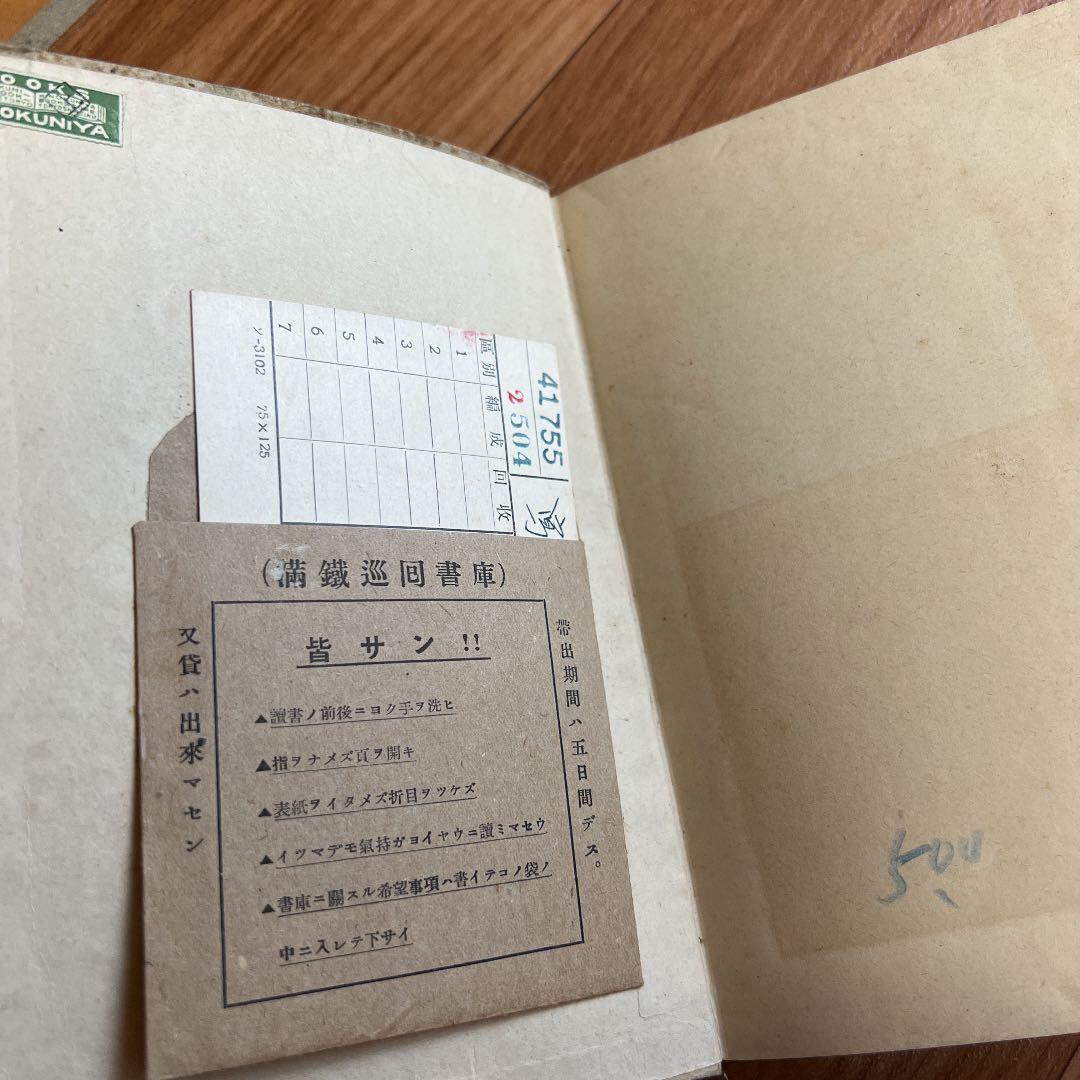 OOKS
OKUNIYA
41755
2504
區別編成回收
1
2
3
4
5
6
7
ソ-3102 75×125
(滿鐵巡回書庫)
皆サン!!
帶出期間ハ五日間デス。
▲讀書ノ前後ニヨク手ヲ洗ヒ
▲指ヲナメズ頁ヲ開キ
▲表紙ヲイタメズ折目ヲツケズ
▲イツマデモ氣持ガヨイヤウニ讀ミマセウ
▲書庫ニ關スル希望事項ハ書イテコノ袋ノ
中ニ入レテ下サイ
又貸ハ出來マセン
500